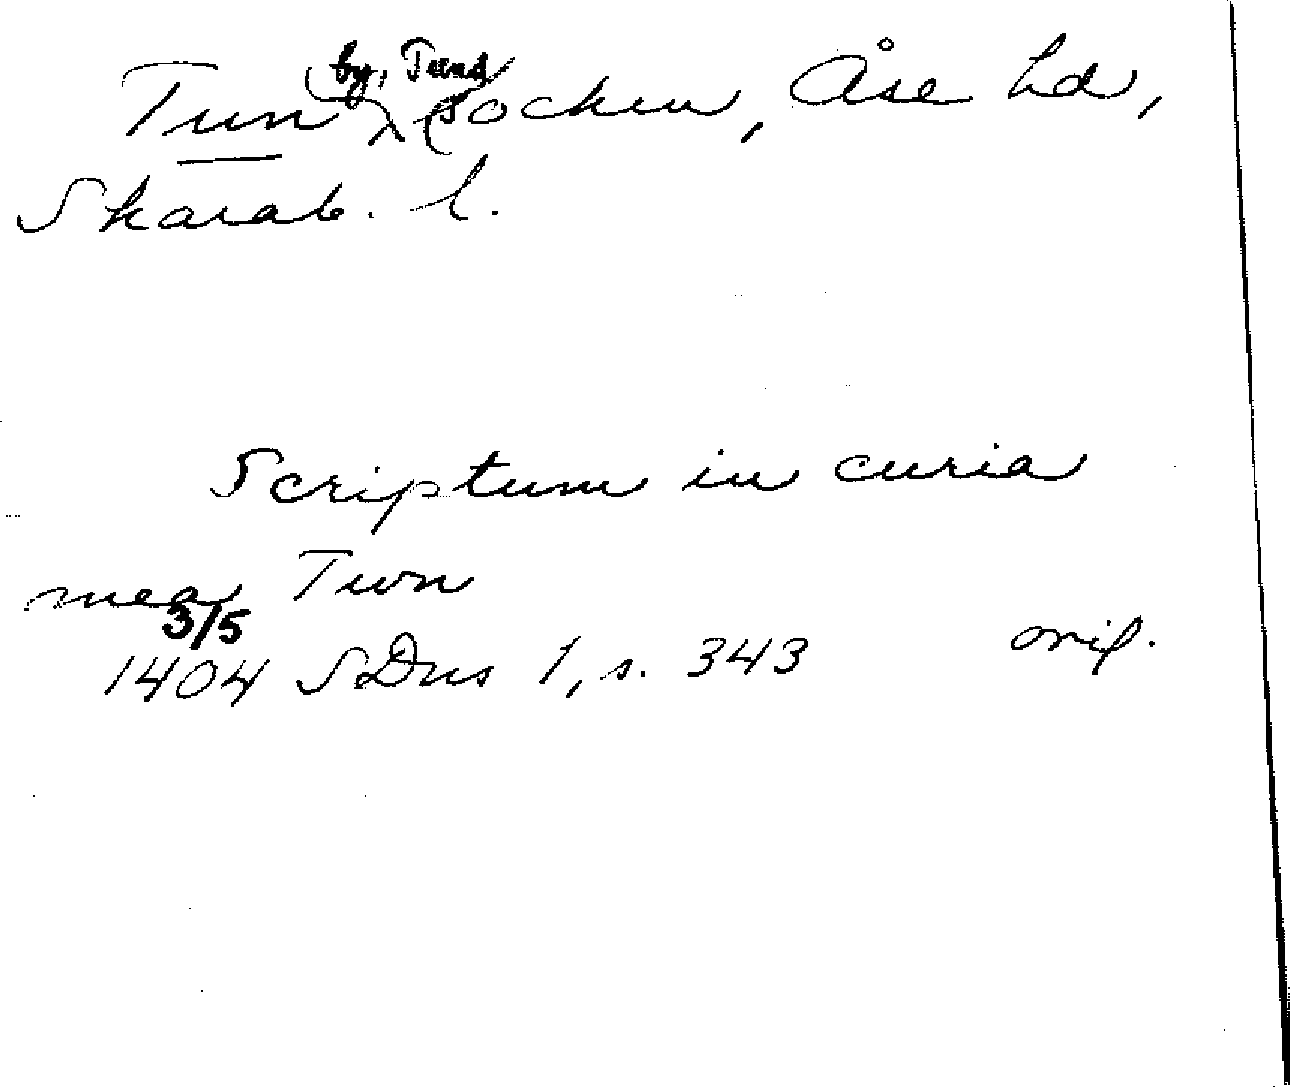 Tun by, Tuns socken, Åse hd,
Skarab. l.
Scriptum in curia
mea Twn
3/5
1404 SDns 1, s. 343 orig.